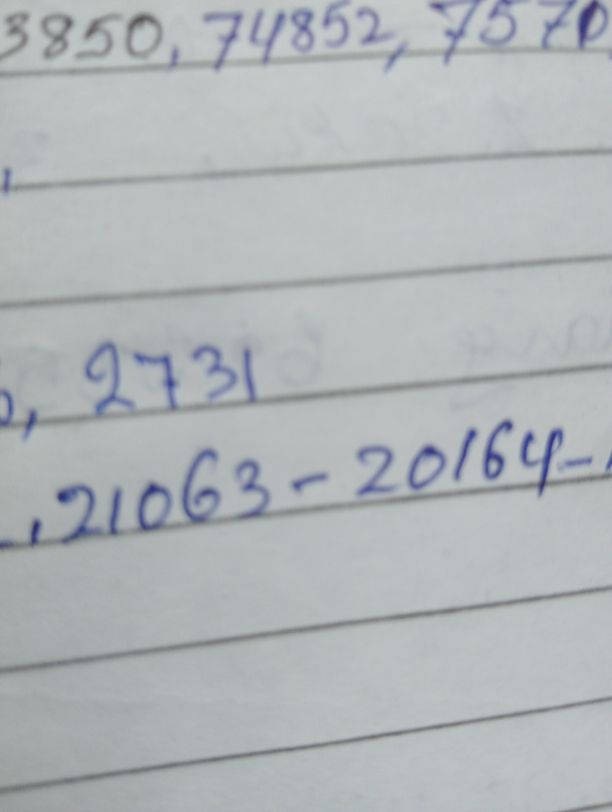 3850, 74852, 7570
, 2731
, 21063 - 20164 -